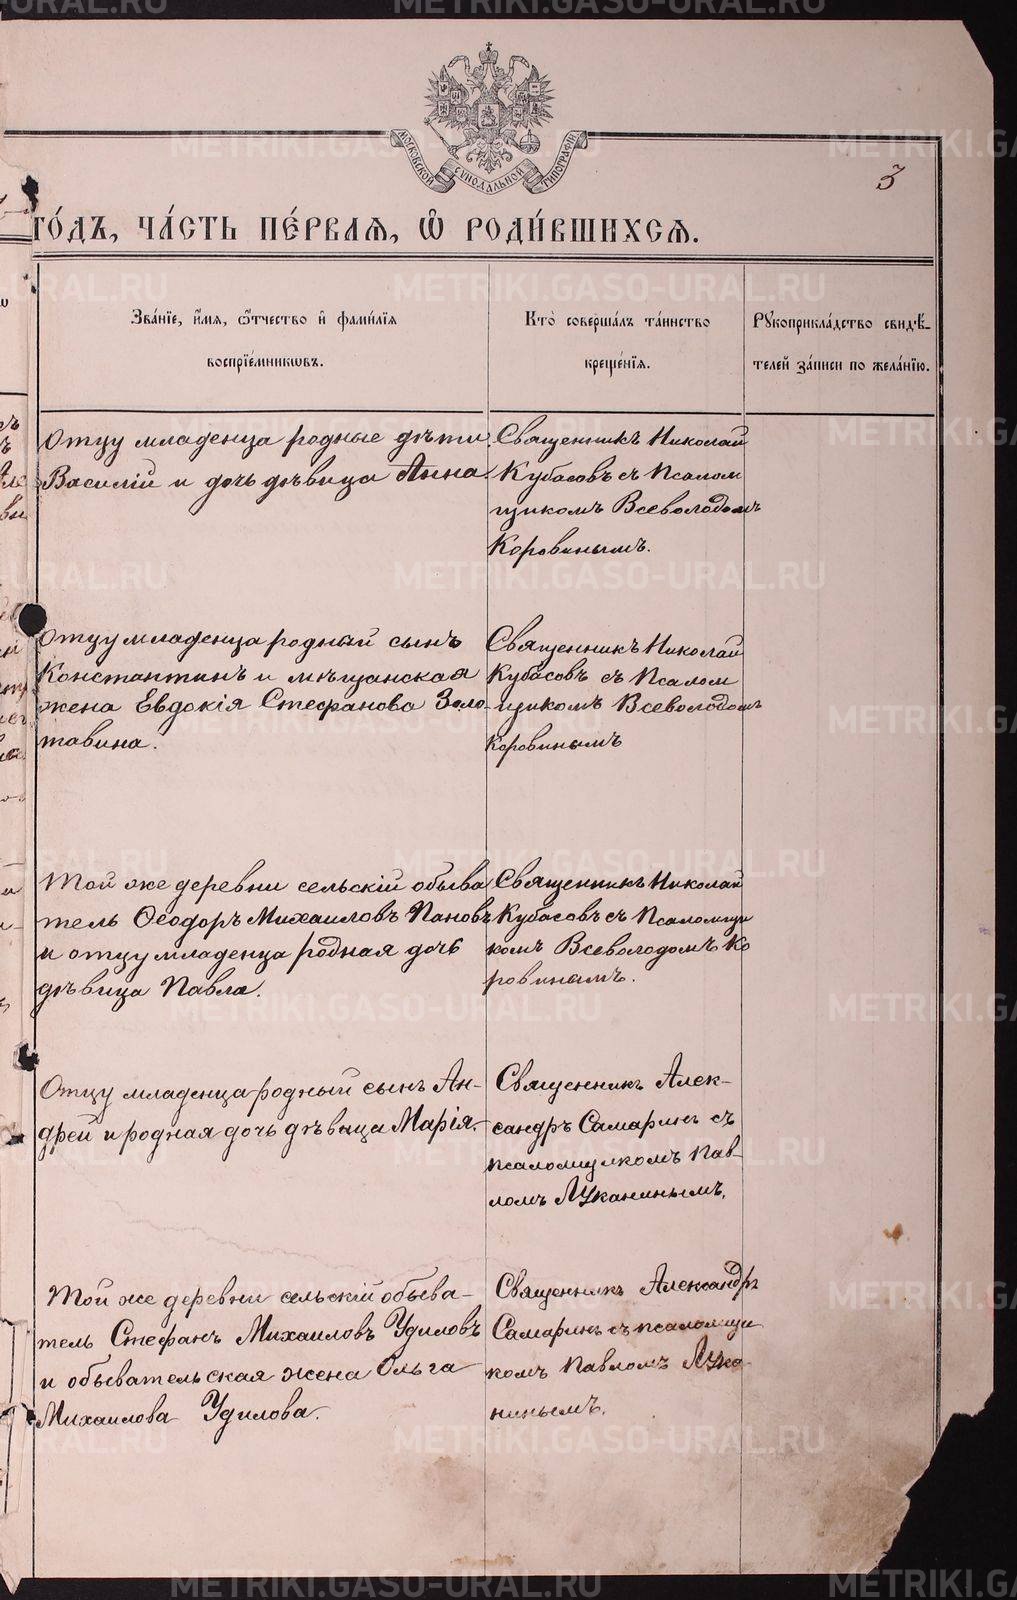 МОСКОВСКОЙ СУНОДАЛЬНОЙ ТИПОГРАФІИ
3
ГО́ДЪ, ЧА́СТЬ ПЕ́РВАѦ, Ѽ РОДИ́ВШИХСѦ.
Зва́нїе, и҆́мѧ, ѻ҆́тчество и҆ фами́лїѧ
воспрїе́мникѡвъ.
Кто̀ соверша́лъ та́инство
креще́нїѧ.
Рꙋкоприкла́дство свидѣ́-
телей за́писи по жела́нїю.
Отцу младенца родные дѣти
Василій и дочь дѣвица Анна.
Священникъ Николай
Кубасовъ съ Псалом
щикомъ Всеволодомъ
Коровинымъ.
Отцу младенца родный сынъ
Константинъ и мѣщанская
жена Евдокія Стефанова Золо-
тавина.
Священникъ Николай
Кубасовъ съ Псалом
щикомъ Всеволодомъ
Коровинымъ
Той же деревни сельскій обыва
тель Ѳеодоръ Михаиловъ Пановъ
и отцу младенца родная дочь
дѣвица Павла.
Священникъ Николай
Кубасовъ съ Псаломщи
комъ Всеволодомъ Ко
ровинымъ.
Отцу младенца родный сынъ Ан-
дрей и родная дочь дѣвица Марія.
Священникъ Алек-
сандръ Самаринъ съ
псаломщикомъ Пав-
ломъ Луканинымъ.
Той же деревни сельскій обыва-
тель Стефанъ Михаиловъ Удиловъ
и обывательская жена Ольга
Михаилова Удилова.
Священникъ Александръ
Самаринъ съ псаломщи
комъ Павломъ Лука-
нинымъ.
METRIKI.GASO-URAL.RU